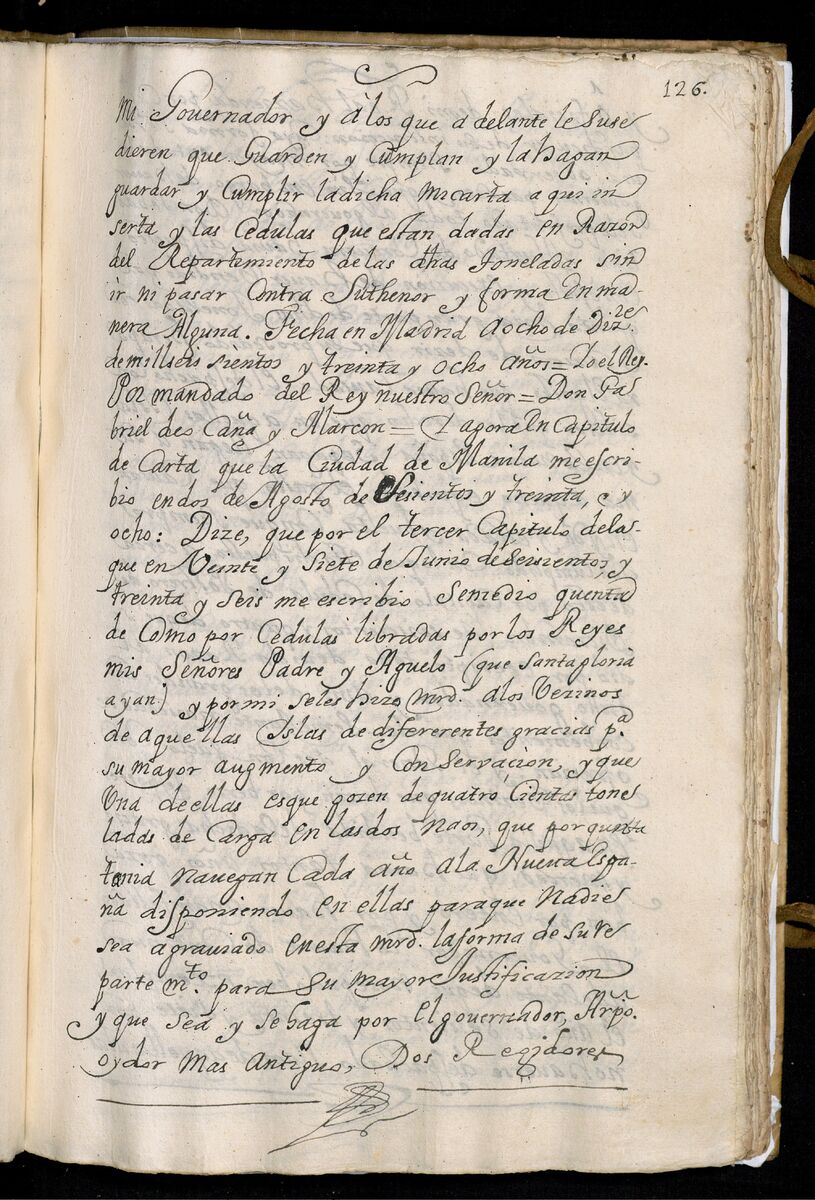 126.
mi Governador y a los que a delante le suse
dieren que Guarden y Cumplan y la hagan
guardar y Cumplir la dicha mi carta a qui in
serta y las Cedulas que estan dadas en Razon
del Repartimiento de las dhas Toneladas sin
ir ni pasar Contra Suthenor y forma En ma-
nera Alguna. Fecha en Madrid a ocho de Diz.re
de mill seis sientos y treinta y ocho años = Yo el Rey.
Por mandado del Rey nuestro Señor = Don Ga
briel de o Caña y Alarcon = Y agora En Capitulo
de Carta que la Ciudad de Manila me escri-
bio en dos de Agosto de Seisientos y treinta, e y
ocho: Dize, que por el tercer Capitulo de la-
que en Veinte y siete de Junio de Seisientos, y
treinta y seis me escribio se me dio quenta
de Como por Cedulas libradas por los Reyes
mis Señores Padre y Aguelo (que santa gloria
ayan) y por mi se les hizo mrd. a los Vezinos
de aquellas Islas de difererentes gracias p.a
su mayor augmento y Conservacion, y que
Una de ellas es que gozen de quatro Cientas tone
ladas de Carga en las dos naos, que por quenta
tania navegan Cada año a la Nueva Espa-
ña disponiendo en ellas para que Nadie
sea agraviado en esta mrd. la forma de su re
parte m.to para su mayor Justificazion
y que sea y se haga por El governador, Arpo.
oydor mas Antiguo, Dos Regidores